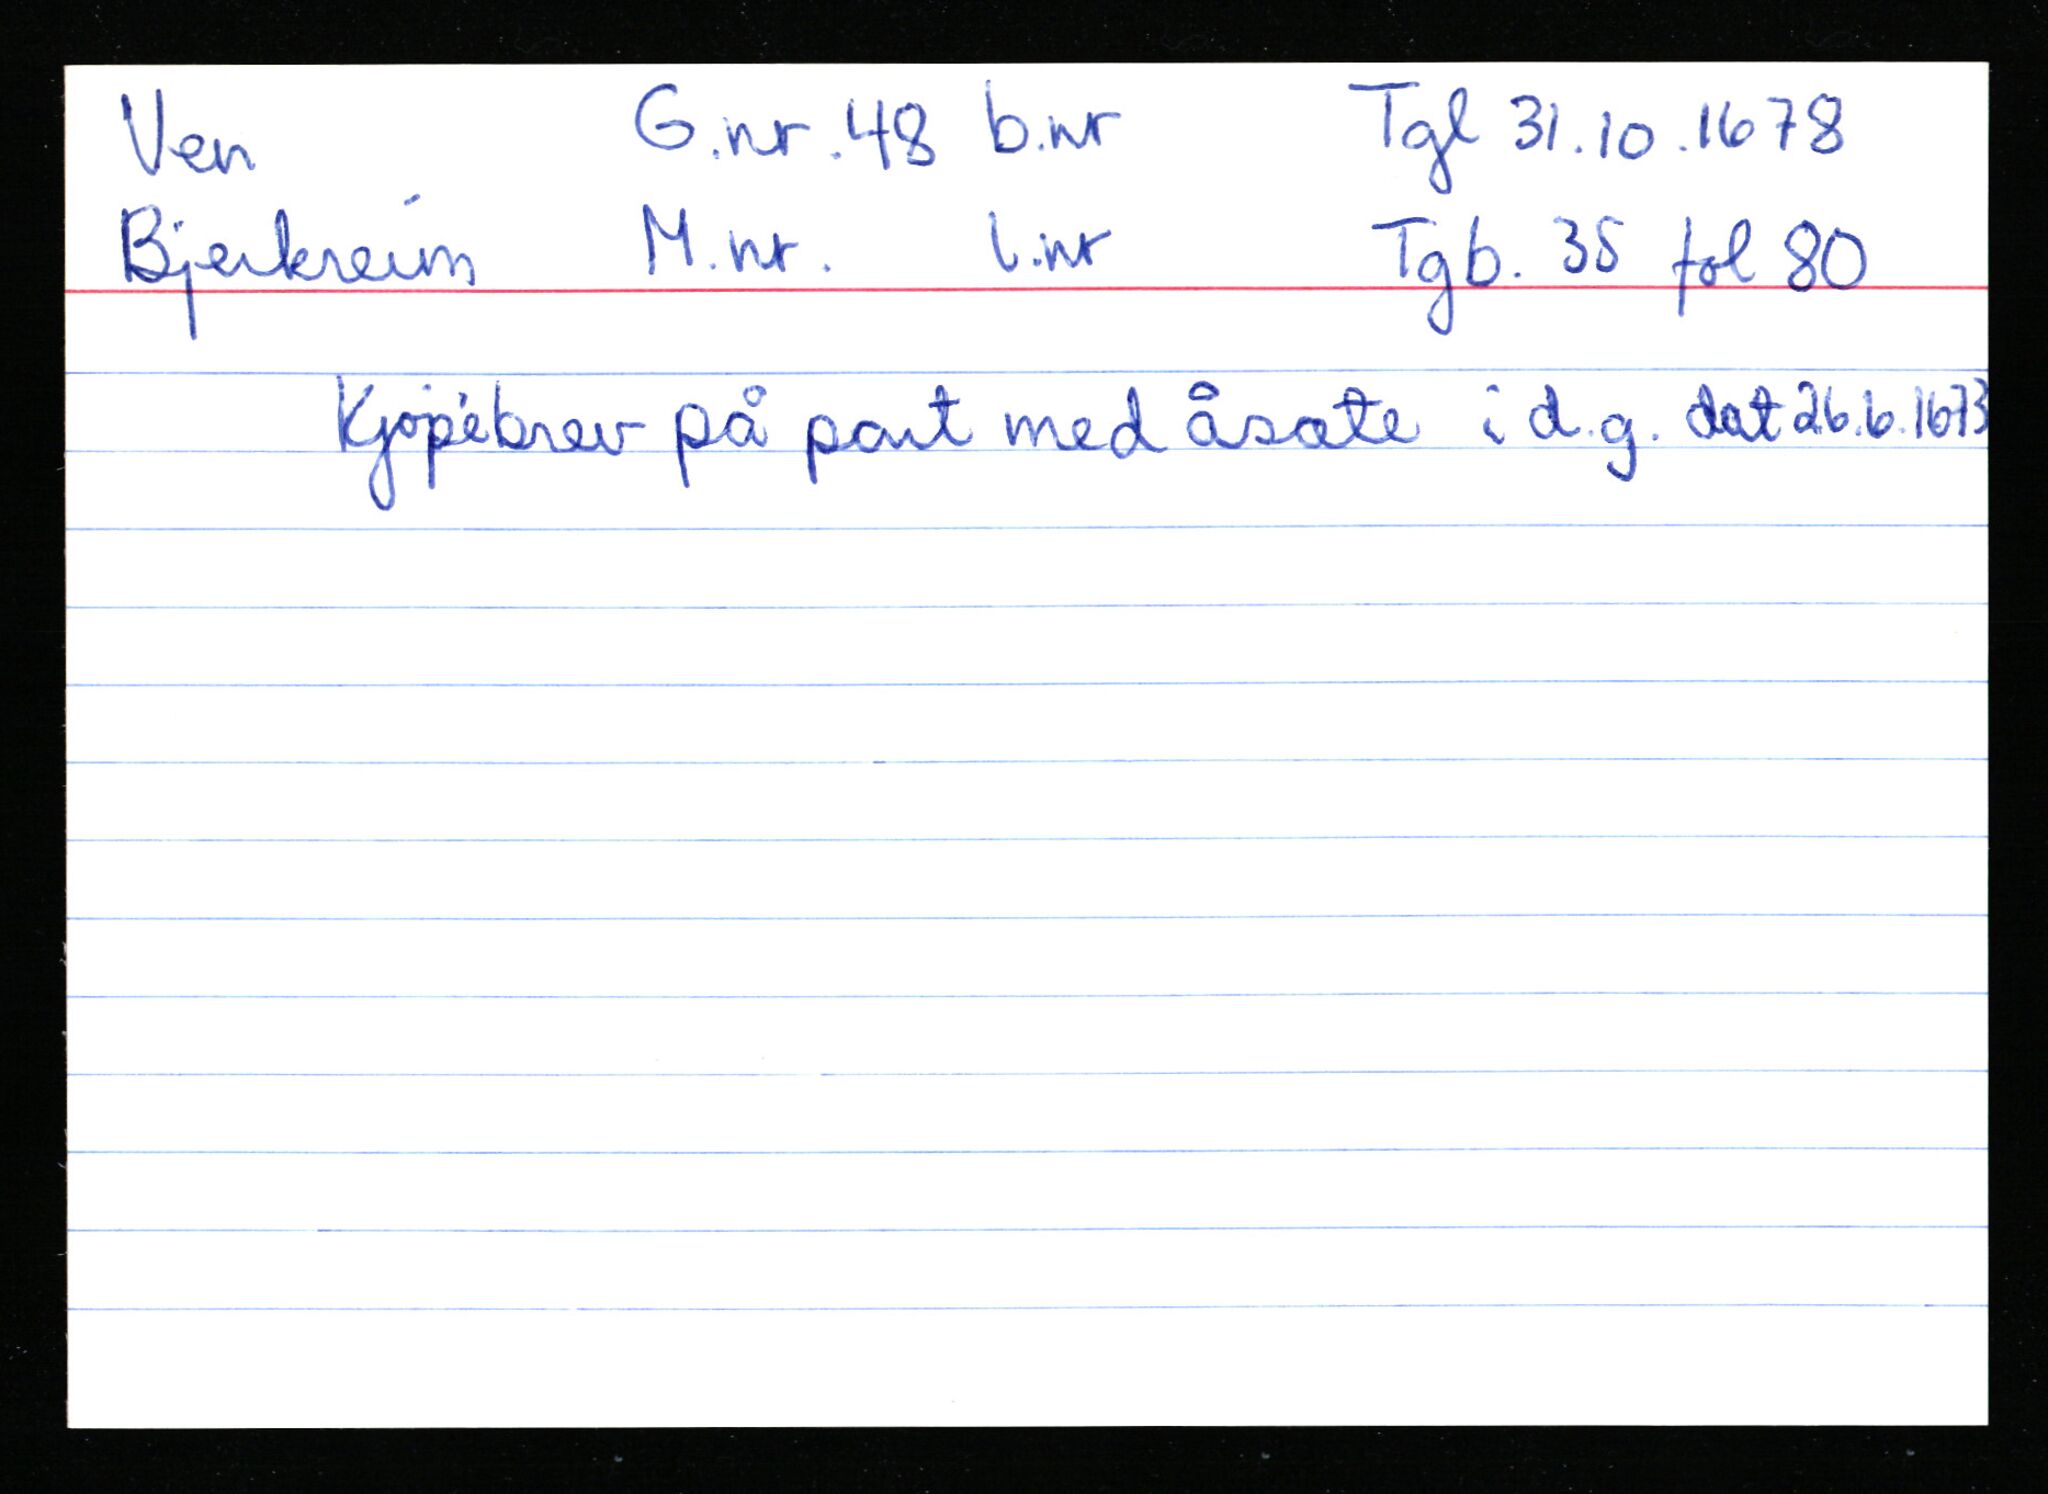 Ven G.nr.48 b.nr Tgl 31.10.1678
Bjerkreim M.nr. l.nr Tgb. 35 fol 80
Kjøpebrev på part med åsæte i d.g. dat 26.6.1673